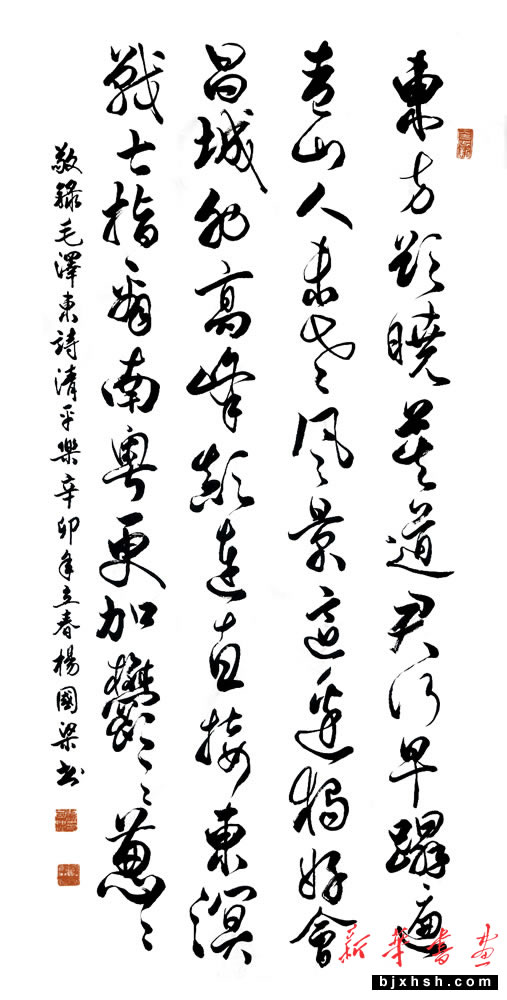 東方欲曉莫道君行早踏遍
青山人未老風景這邊獨好會
昌城外高峰顛連直接東溟
戰士指看南粵更加鬱〻葱〻
敬錄毛澤東詩清平樂辛卯年立春楊國梁書
新華書畫
bjxhsh.com